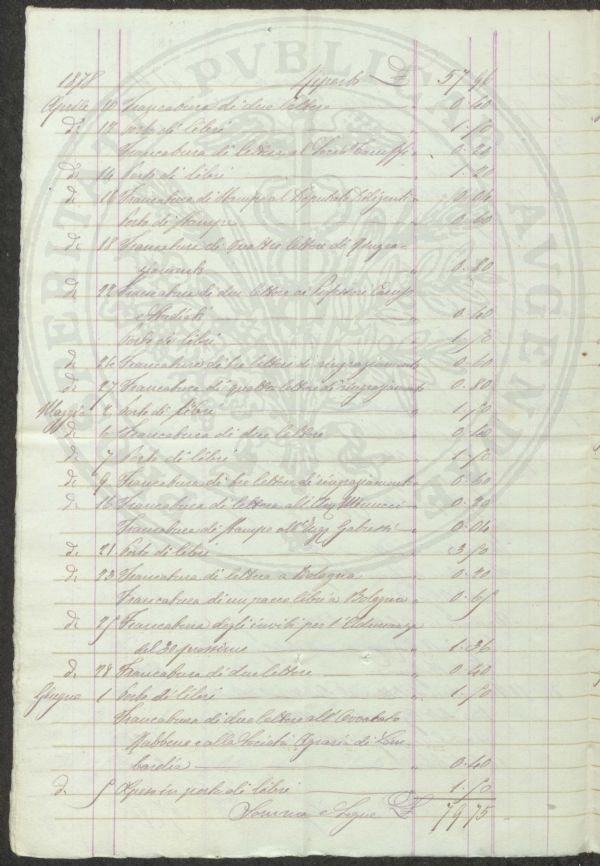 1878 Riporto £ 57.96
Aprile 10 Francatura di due lettere 0.40
d. 12 Porto di libri 1.50
Francatura di lettera al Socio 0.20
d. 14 Porto di libri 1.20
d. 16 Francatura di Stampe al Deputato 0.04
Porto di Stampe 0.60
d. 18 Francatura di quattro lettere di Ringra-
ziamento 0.80
d. 22 Francatura di due lettere ai Professori
0.40
Porto di libri 1.50
d. 26 Francatura di tre lettere di ringraziamento 0.60
d. 27 Francatura di quattro lettere di ringraziamento 0.80
Maggio 2 Porto di libri 1.50
d. 6 Francatura di due lettere 0.40
d. 7 Porto di libri 1.50
d. 9 Francatura di tre lettere di ringraziamento 0.60
d. 16 Francatura di lettera all'Ing. 0.20
Francatura di Stampe all'Ing. Gabussi 0.04
d. 21 Porto di libri 3.50
d. 23 Francatura di lettera a Bologna 0.20
Francatura di un pacco libri a Bologna 0.65
d. 25 Francatura degli inviti per l'Adunanza
del 30 prossimo 1.36
d. 28 Francatura di due lettere 0.40
Giugno 1 Porto di libri 1.50
Francatura di due lettere all'Avvocato
Rabbeno e alla Società Agraria di Lom-
bardia 0.40
d. 5 Spese in porto di libri 1.50
Somma e Segue £ 79.75
PVBLICAE AVGENDAE